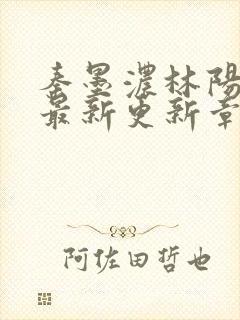 秦墨濃林陽
最新更新章
阿佐田哲也